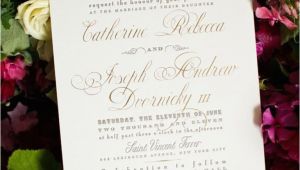 request the honour of your
at the marriage of their daughter
Catherine Rebecca
AND
Joseph Andrew
Dvornicky III
SATURDAY, THE ELEVENTH OF JUNE
half past three o'clock in the afternoon
Saint Vincent Ferrer
869 LEXINGTON AVENUE, NEW YORK CITY
to follow